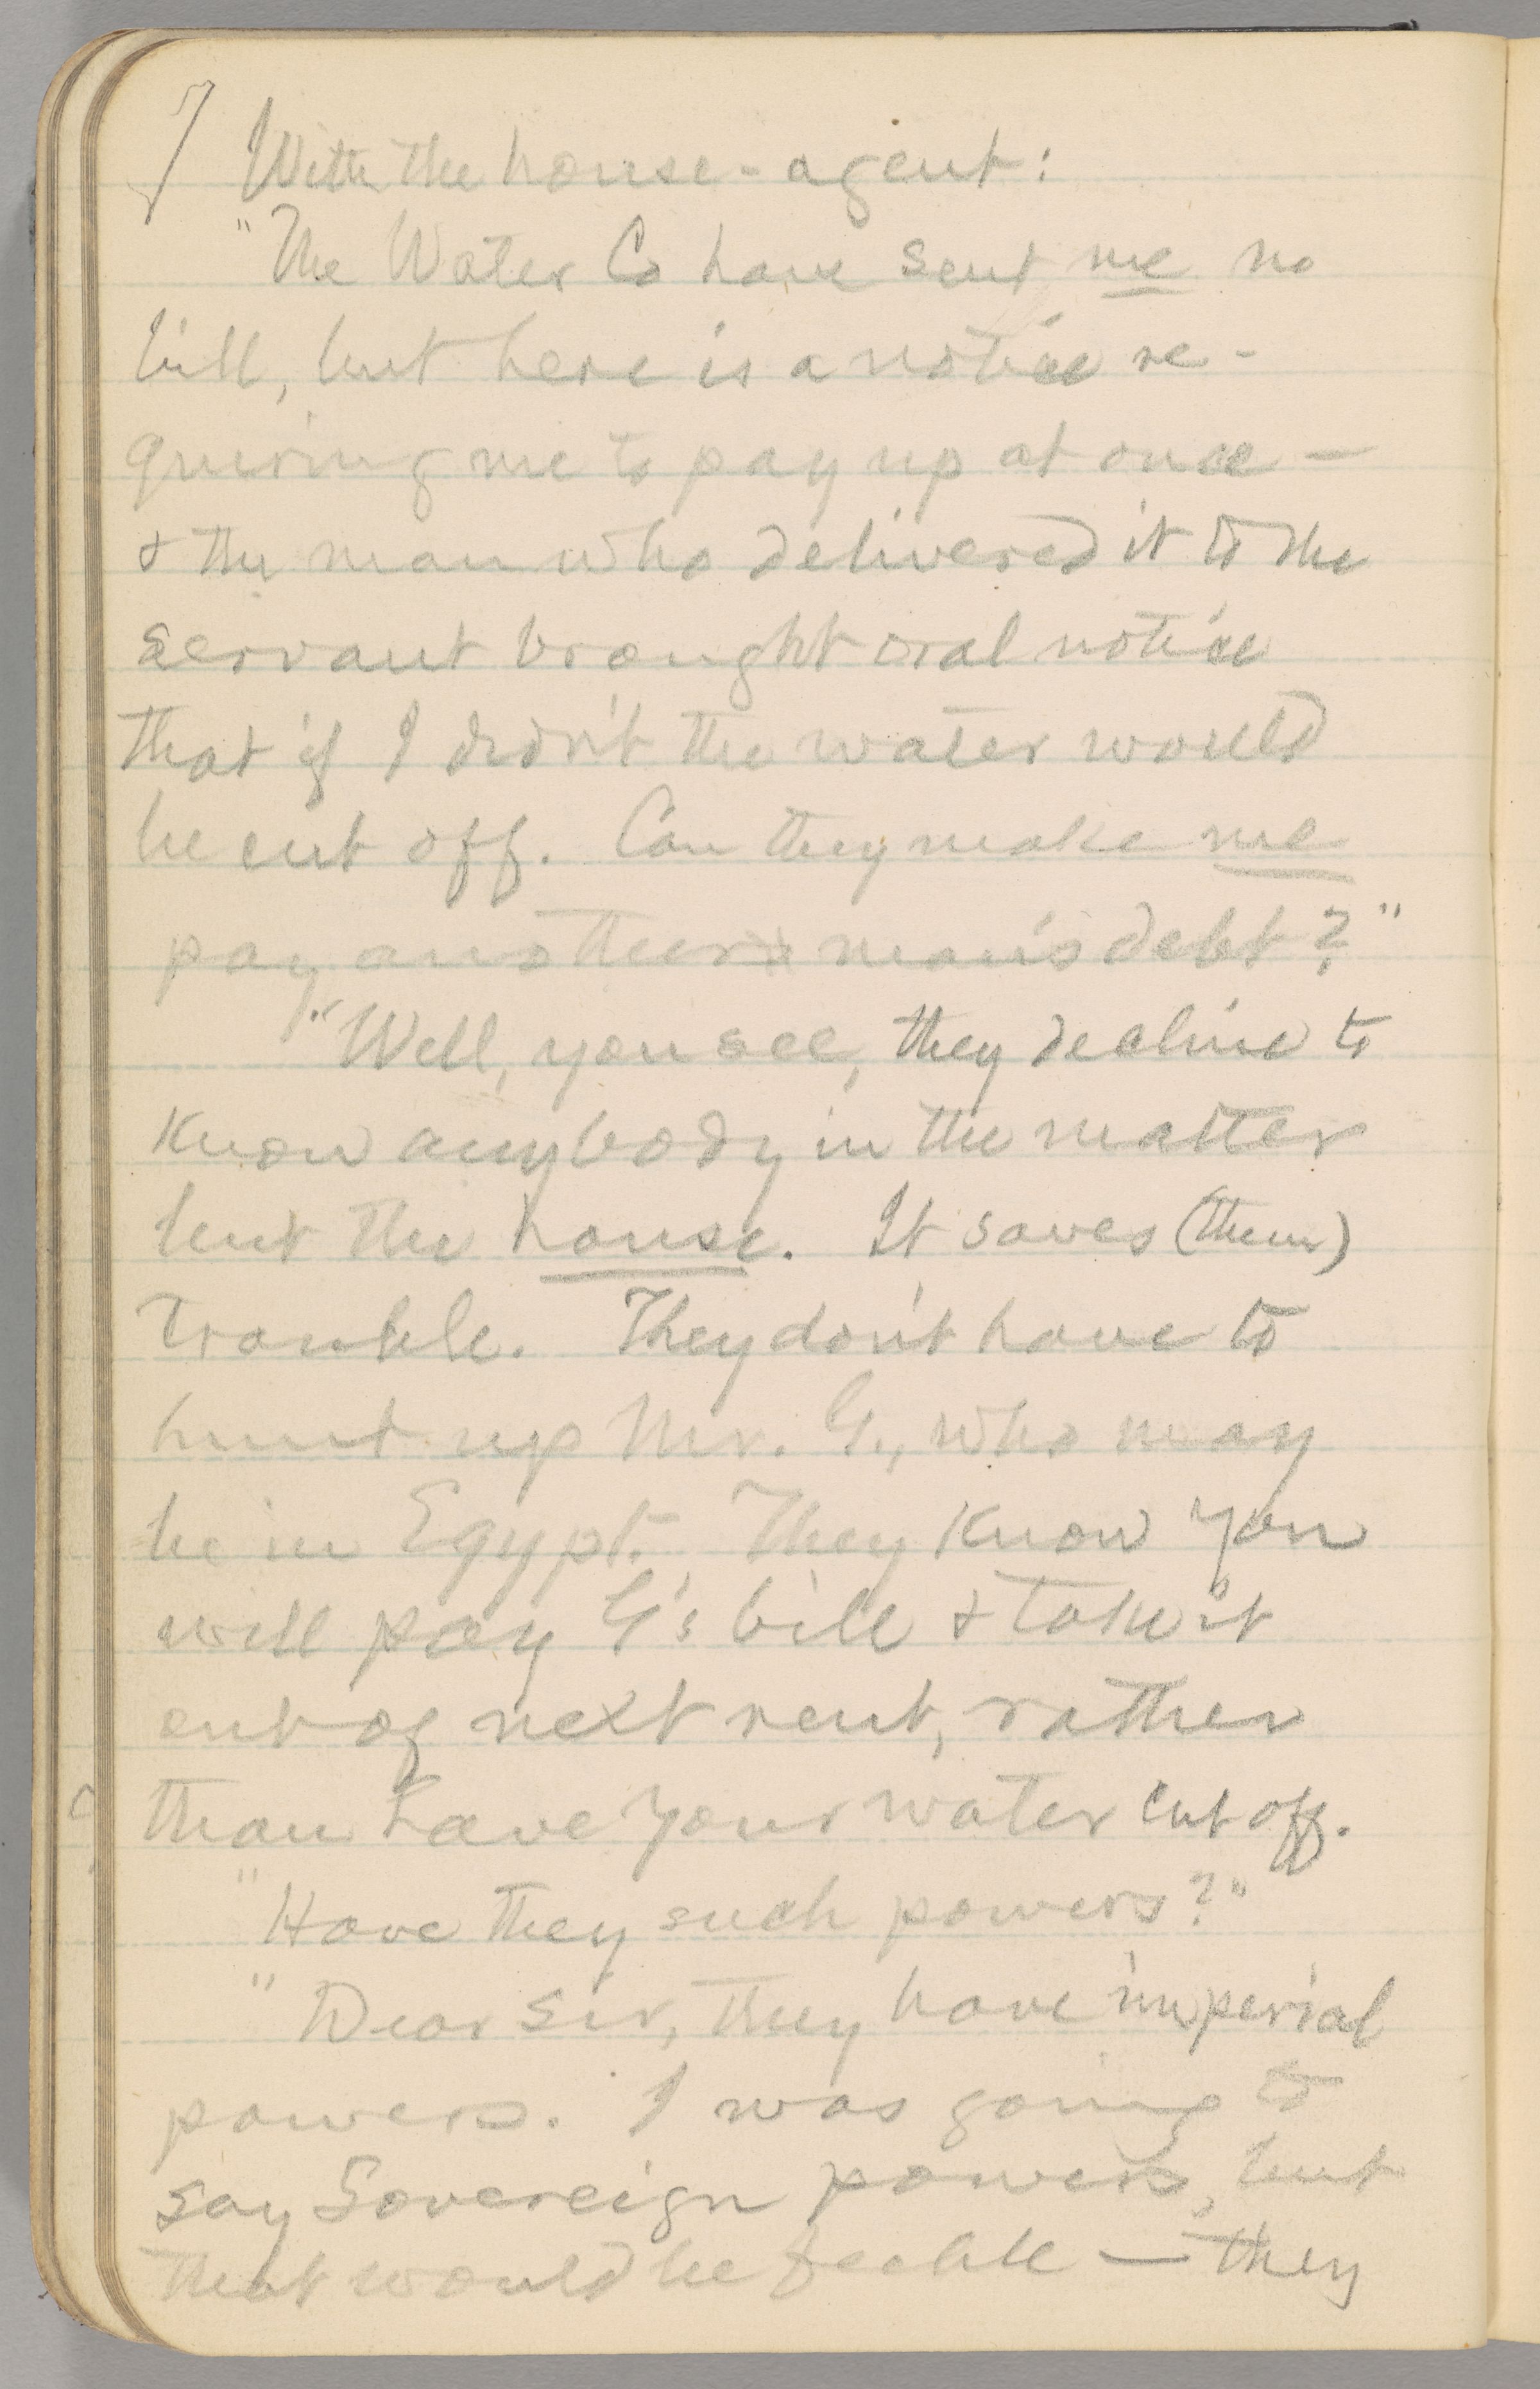 7 With the house-agent:
"The Water Co have sent me no
bill, but here is a notice re-
quiring me to pay up at once —
& the man who delivered it to the
servant brought oral notice
that if I didn't the water would
be cut off. Can they make me
pay another man's debt?"
"Well, you see, they decline to
know anybody in the matter
but the house. It saves (them)
trouble. They don't have to
hunt up Mr. G., who may
be in Egypt. They know you
will pay G's bill & take it
out of next rent, rather
than have your water cut off.
"Have they such powers?"
"Dear sir, they have imperial
powers. I was going to
say Sovereign powers, but
that would be feeble — they